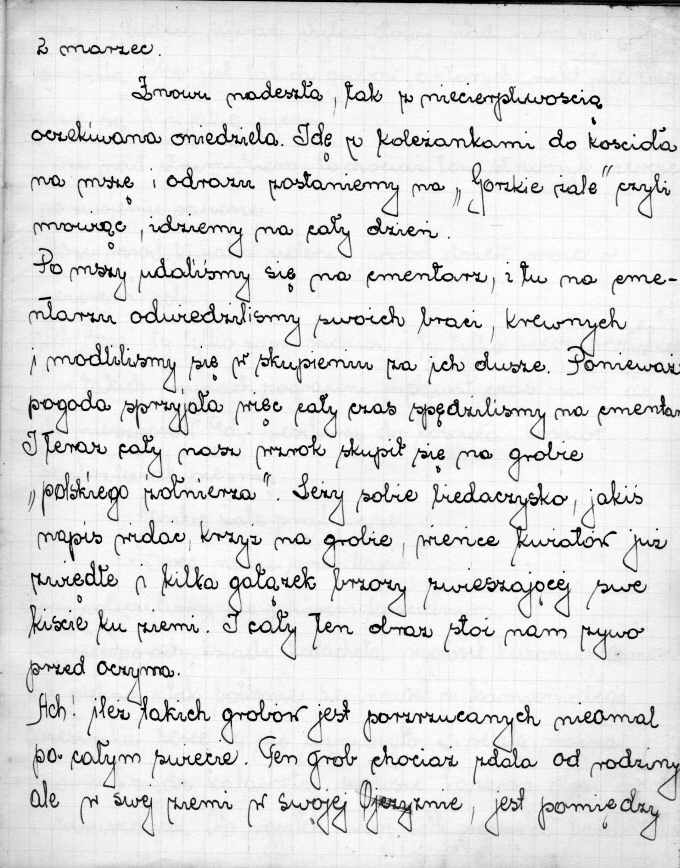 2 marzec.
Znowu nadeszła, tak z niecierpliwością
oczekiwana niedziela. Idę z koleżankami do kościoła
na mszę i odrazu zostaniemy na „Gorzkie żale" czyli
mowiąc, idziemy na cały dzień.
Po mszy udaliśmy się na cmentarz, i tu na cme-
ntarzu odwiedziliśmy swoich braci, krewnych
i modliliśmy się w skupieniu za ich dusze. Ponieważ
pogoda sprzyjała więc cały czas spędziliśmy na cmentar
I teraz cały nasz wzrok skupił się na grobie
„polskiego żołnierza". Leży sobie biedaczysko, jakiś
napis widac, krzyż na grobie, wience kwiatów już
zwiędłe i kilka gałązek brzozy zwieszającej swe
kiście ku ziemi. I cały ten obraz stoi nam żywo
przed oczyma.
Ach! ileż takich grobów jest porzrzucanych nieomal
po całym swiecie. Ten grob chociaż zdala od rodziny
ale w swej ziemi w swojej Ojczyznie, jest pomiędzy